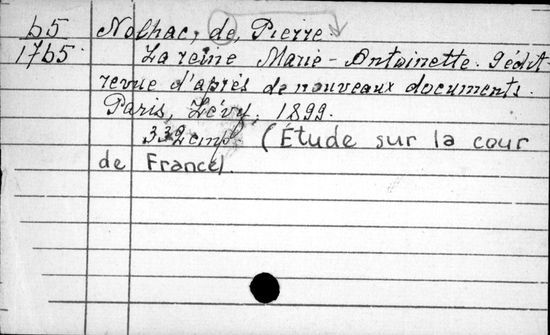 b5 Nolhac, de, Pierre.
1765. La reine Marie-Antoinette. 9 édit.
revue d'après de nouveaux documents.
Paris, Lévy, 1899.
332 стр. (Étude sur la cour
de France).